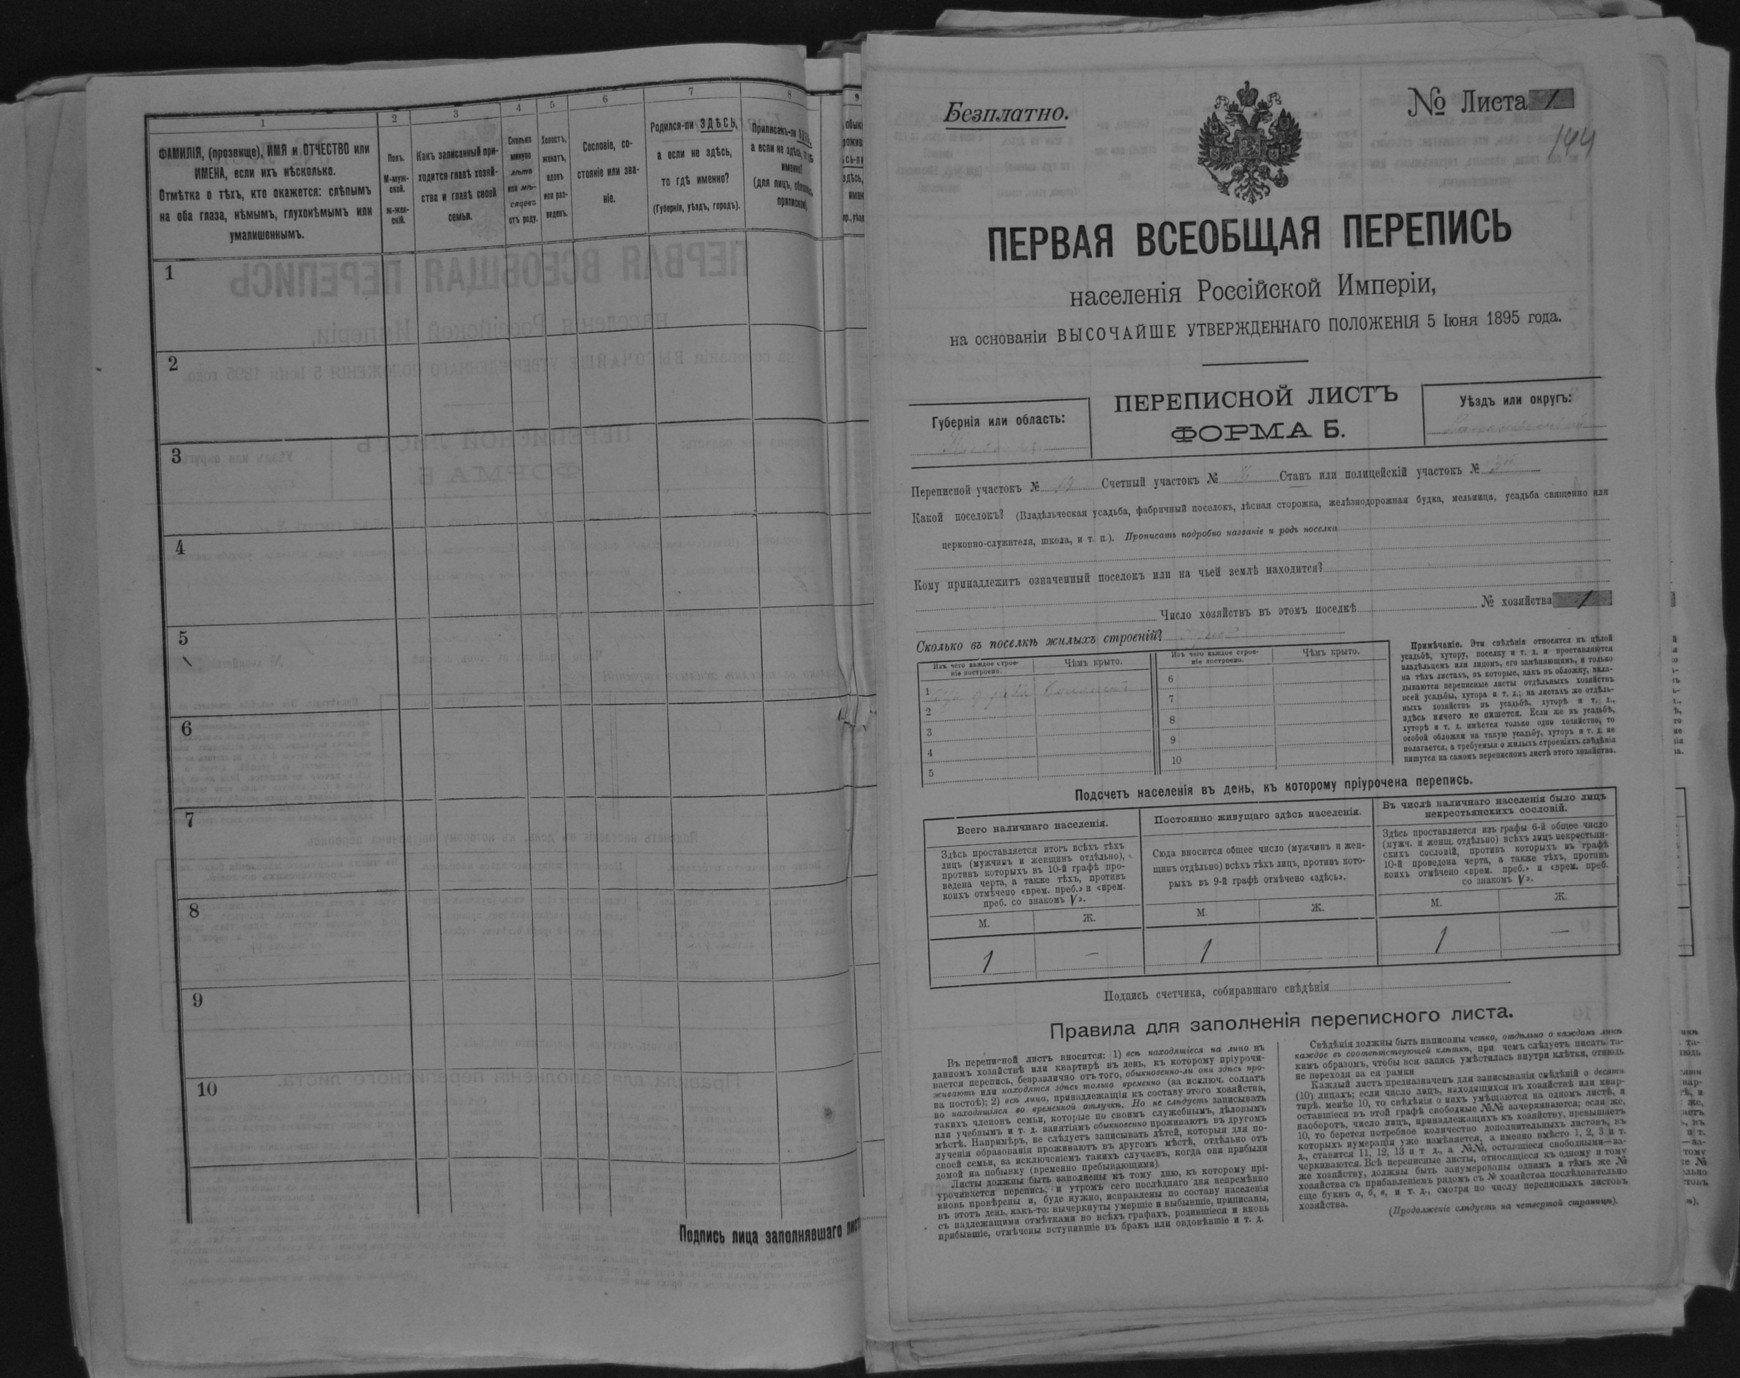 1
2
3
4
5
6
7
8
ФАМИЛІЯ, (прозвище), ИМЯ и ОТЧЕСТВО или
ИМЕНА, если ихъ нѣсколько.
Отмѣтка о тѣхъ, кто окажется: слѣпымъ
на оба глаза, нѣмымъ, глухонѣмымъ или
умалишеннымъ.
Полъ.
М-муж-
ской.
ж-жен-
скій.
Какъ записанный при-
ходится главѣ хозяй-
ства и главѣ своей
семьи.
Сколько
минуло
лѣтъ
или мѣ-
сяцевъ
отъ роду.
Холостъ,
женатъ,
вдовъ
или раз-
веденъ.
Сословіе, со-
стояніе или зва-
ніе.
Родился-ли ЗДѢСЬ,
а если не здѣсь,
то гдѣ именно?
(Губернія, уѣздъ, городъ).
Приписанъ-ли
а если не здѣсь,
именно?
(для лицъ,
1
2
3
4
5
6
7
8
9
10
Подпись лица заполнявшаго
Безплатно.
№ Листа 1
144
ПЕРВАЯ ВСЕОБЩАЯ ПЕРЕПИСЬ
населенія Россійской Имперіи,
на основаніи ВЫСОЧАЙШЕ УТВЕРЖДЕННАГО ПОЛОЖЕНІЯ 5 Іюня 1895 года.
Губернія или область:
ПЕРЕПИСНОЙ ЛИСТЪ
ФОРМА Б.
Уѣздъ или округъ:
Переписной участокъ № Счетный участокъ № Станъ или полицейскій участокъ №
Какой поселокъ? (Владѣльческая усадьба, фабричный поселокъ, лѣсная сторожка, желѣзнодорожная будка, мельница, усадьба священно или
церковно-служителя, школа, и т. п.). Прописать подробно названіе и родъ поселка
Кому принадлежитъ означенный поселокъ или на чьей землѣ находится?
Число хозяйствъ въ этомъ поселкѣ № хозяйства 1
Сколько въ поселкѣ жилыхъ строеній?
Изъ чего каждое строе-
ніе построено.
Чѣмъ крыто.
Изъ чего каждое строе-
ніе построено.
Чѣмъ крыто.
1
2
3
4
5
6
7
8
9
10
Примѣчаніе. Эти свѣдѣнія относятся къ цѣлой
усадьбѣ, хутору, поселку и т. д. и проставляются
владѣльцемъ или лицомъ, его замѣняющимъ, и только
на тѣхъ листахъ, въ которые, какъ въ обложку, вкла-
дываются переписные листы отдѣльныхъ хозяйствъ
всей усадьбы, хутора и т. д.; на листахъ же отдѣль-
ныхъ хозяйствъ въ усадьбѣ, хуторѣ и т. д.,
здѣсь ничего не пишется. Если же въ усадьбѣ,
хуторѣ и т. д. имѣется только одно хозяйство, то
особой обложки на такую усадьбу, хуторъ и т. д. не
полагается, а требуемыя о жилыхъ строеніяхъ свѣдѣнія
пишутся на самомъ переписномъ листѣ этого хозяйства.
Подсчетъ населенія въ день, къ которому пріурочена перепись.
Всего наличнаго населенія.
Постоянно живущаго здѣсь населенія.
Въ числѣ наличнаго населенія было лицъ
некрестьянскихъ сословій.
Здѣсь проставляется итогъ всѣхъ тѣхъ
лицъ (мужчинъ и женщинъ отдѣльно),
противъ которыхъ въ 10-й графѣ про-
ведена черта, а также тѣхъ, противъ
коихъ отмѣчено «врем. преб.» и «врем.
преб. со знакомъ V».
Сюда вносится общее число (мужчинъ и жен-
щинъ отдѣльно) всѣхъ тѣхъ лицъ, противъ кото-
рыхъ въ 9-й графѣ отмѣчено «здѣсь».
Здѣсь проставляется изъ графы 6-й общее число
(мужч. и женщ. отдѣльно) всѣхъ лицъ некрестьян-
скихъ сословій, противъ которыхъ въ графѣ
10-й проведена черта, а также тѣхъ, противъ
коихъ отмѣчено «врем. преб.» и «врем. преб.
со знакомъ V».
М. Ж. М. Ж. М. Ж.
1 — 1 1 —
Подпись счетчика, собиравшаго свѣдѣнія
Правила для заполненія переписного листа.
Въ переписной листъ вносятся: 1) всѣ находящіеся на лицо въ
данномъ хозяйствѣ или квартирѣ въ день, къ которому пріурочи-
вается перепись, безразлично отъ того, обыкновенно-ли они здѣсь про-
живаютъ или находятся здѣсь только временно (за исключ. солдатъ
на постоѣ); 2) всѣ лица, принадлежащія къ составу этого хозяйства,
но находящіяся во временной отлучкѣ. Но не слѣдуетъ записывать
такихъ членовъ семьи, которые по своимъ служебнымъ, дѣловымъ
или учебнымъ и т. д. занятіямъ обыкновенно проживаютъ въ другомъ
мѣстѣ. Напримѣръ, не слѣдуетъ записывать дѣтей, которыя для по-
лученія образованія проживаютъ въ другомъ мѣстѣ, отдѣльно отъ
своей семьи, за исключеніемъ такихъ случаевъ, когда они прибыли
домой на побывку (временно пребывающими).
Листы должны быть заполнены къ тому дню, къ которому прі-
урочивается перепись; и утромъ сего послѣдняго дня непремѣнно
вновь провѣрены и, буде нужно, исправлены по составу населенія
въ этотъ день, какъ-то: вычеркнуты умершіе и выбывшіе, приписаны,
съ надлежащими отмѣтками во всѣхъ графахъ, родившіеся и вновь
прибывшіе, отмѣчены вступившіе въ бракъ или овдовѣвшіе и т. д.
Свѣдѣнія должны быть написаны четко, отдѣльно о каждомъ лицѣ
каждое въ соотвѣтствующей клѣткѣ, при чемъ слѣдуетъ писать та-
кимъ образомъ, чтобы вся запись умѣстилась внутри клѣтки, отнюдь
не переходя за ея рамки
Каждый листъ предназначенъ для записыванія свѣдѣній о десяти
(10) лицахъ; если число лицъ, находящихся въ хозяйствѣ или квар-
тирѣ, менѣе 10, то свѣдѣнія о нихъ умѣщаются на одномъ листѣ, а
оставшіеся въ этой графѣ свободные №№ зачеркиваются; если же,
наоборотъ, число лицъ, принадлежащихъ къ хозяйству, превышаетъ
10, то берется потребное количество дополнительныхъ листовъ, въ
которыхъ нумерація уже измѣняется, а именно вмѣсто 1, 2, 3 и т.
д., ставится 11, 12, 13 и т. д., а №№, оставшіеся свободными—за-
черкиваются. Всѣ переписные листы, относящіеся къ одному и тому
же хозяйству, должны быть занумерованы однимъ и тѣмъ же №
хозяйства съ прибавленіемъ рядомъ съ № хозяйства послѣдовательно
еще буквъ а, б, в, и т. д., смотря по числу переписныхъ листовъ
хозяйства.
(Продолженіе слѣдуетъ на четвертой страницѣ).